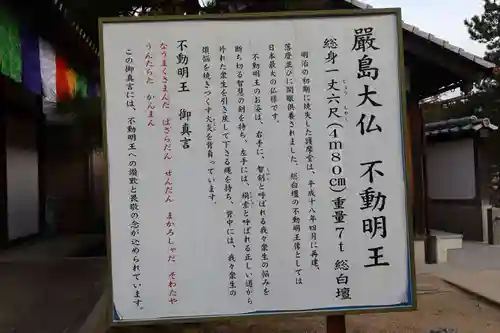 嚴島大仏 不動明王
総身一丈六尺(4m80㎝)重量7t 総白壇
明治の初期に焼失した護摩堂は、平成十八年四月に再建、
落慶並びに開眼供養されました。総白壇の不動明王像としては
日本最大の仏様です。
不動明王のお姿は、右手に、智剣と呼ばれる我々衆生の悩みを
断ち切る智慧の剣を持ち、左手には、羂索と呼ばれる正しい道から
外れた衆生を引き戻して下さる縄を持ち、背中には、我々衆生の
煩悩を焼きつくす火炎を背負っています。
不動明王 御真言
なうまくさまんだ ばざらだん せんだん まかろしゃだ そわたや
うんたらた かんまん
この御真言には、不動明王への讃歎と畏敬の念が込められています。